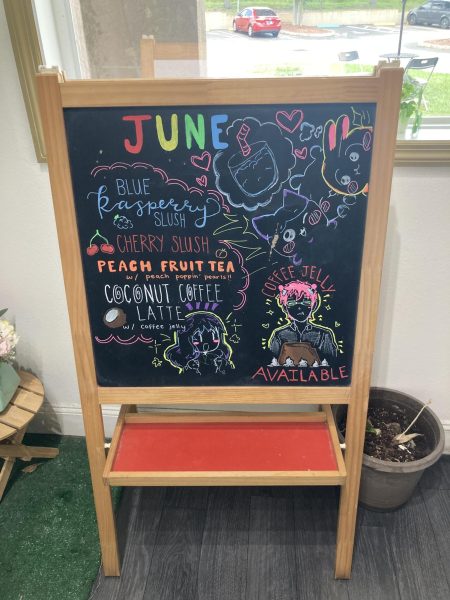 JUNE
BLUE
Rasperry
SLUSH
CHERRY SLUSH
PEACH FRUIT TEA
w/ peach poppin' pearls!!
COCONUT COFFEE
LATTE
w/ coffee jelly
COFFEE JELLY
AVAILABLE